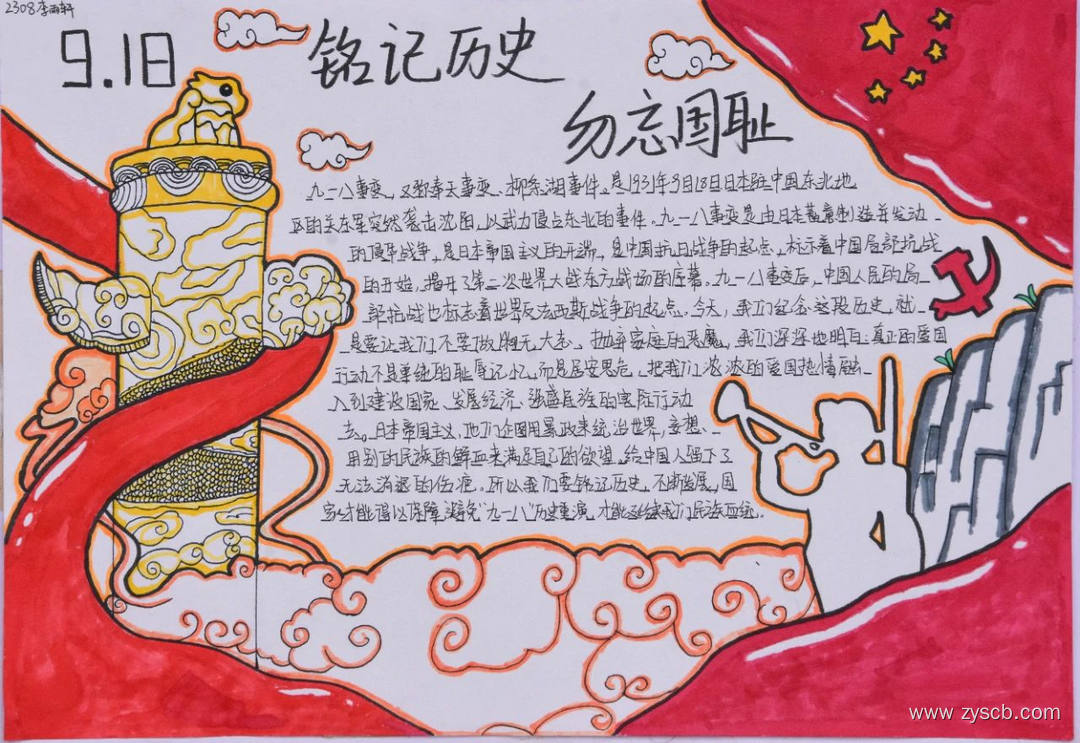 2308李雨轩
9.18
铭记历史
勿忘国耻
九一八事变，又称奉天事变、柳条湖事件。是1931年9月18日日本驻中国东北地
区的关东军突然袭击沈阳，以武力侵占东北的事件。九一八事变是由日本蓄意制造并发动
的侵华战争，是日本帝国主义的开端，是中国抗日战争的起点，标示着中国局部抗战
的开始，揭开了第二次世界大战东方战场的序幕。九一八事变后，中国人民的局
部抗战也标志着世界反法西斯战争的起点。今天，我们纪念这段历史，就
是要让我们不要做胸无大志、抛弃家庭的恶魔，我们深深地明白：真正的爱国
行动不是单纯的耻辱记忆，而是居安思危、把我们浓浓的爱国热情融
入到建设国家、发展经济、强盛民族的实际行动
去。日本帝国主义，他们企图用暴政来统治世界，妄想
用别的民族的鲜血来满足自己的欲望，给中国人留下了
无法消退的伤痕。所以我们要铭记历史，不断发展，国
家才能得以保障，避免"九一八"历史重演，才能延续我们民族血统。
www zyscb.com